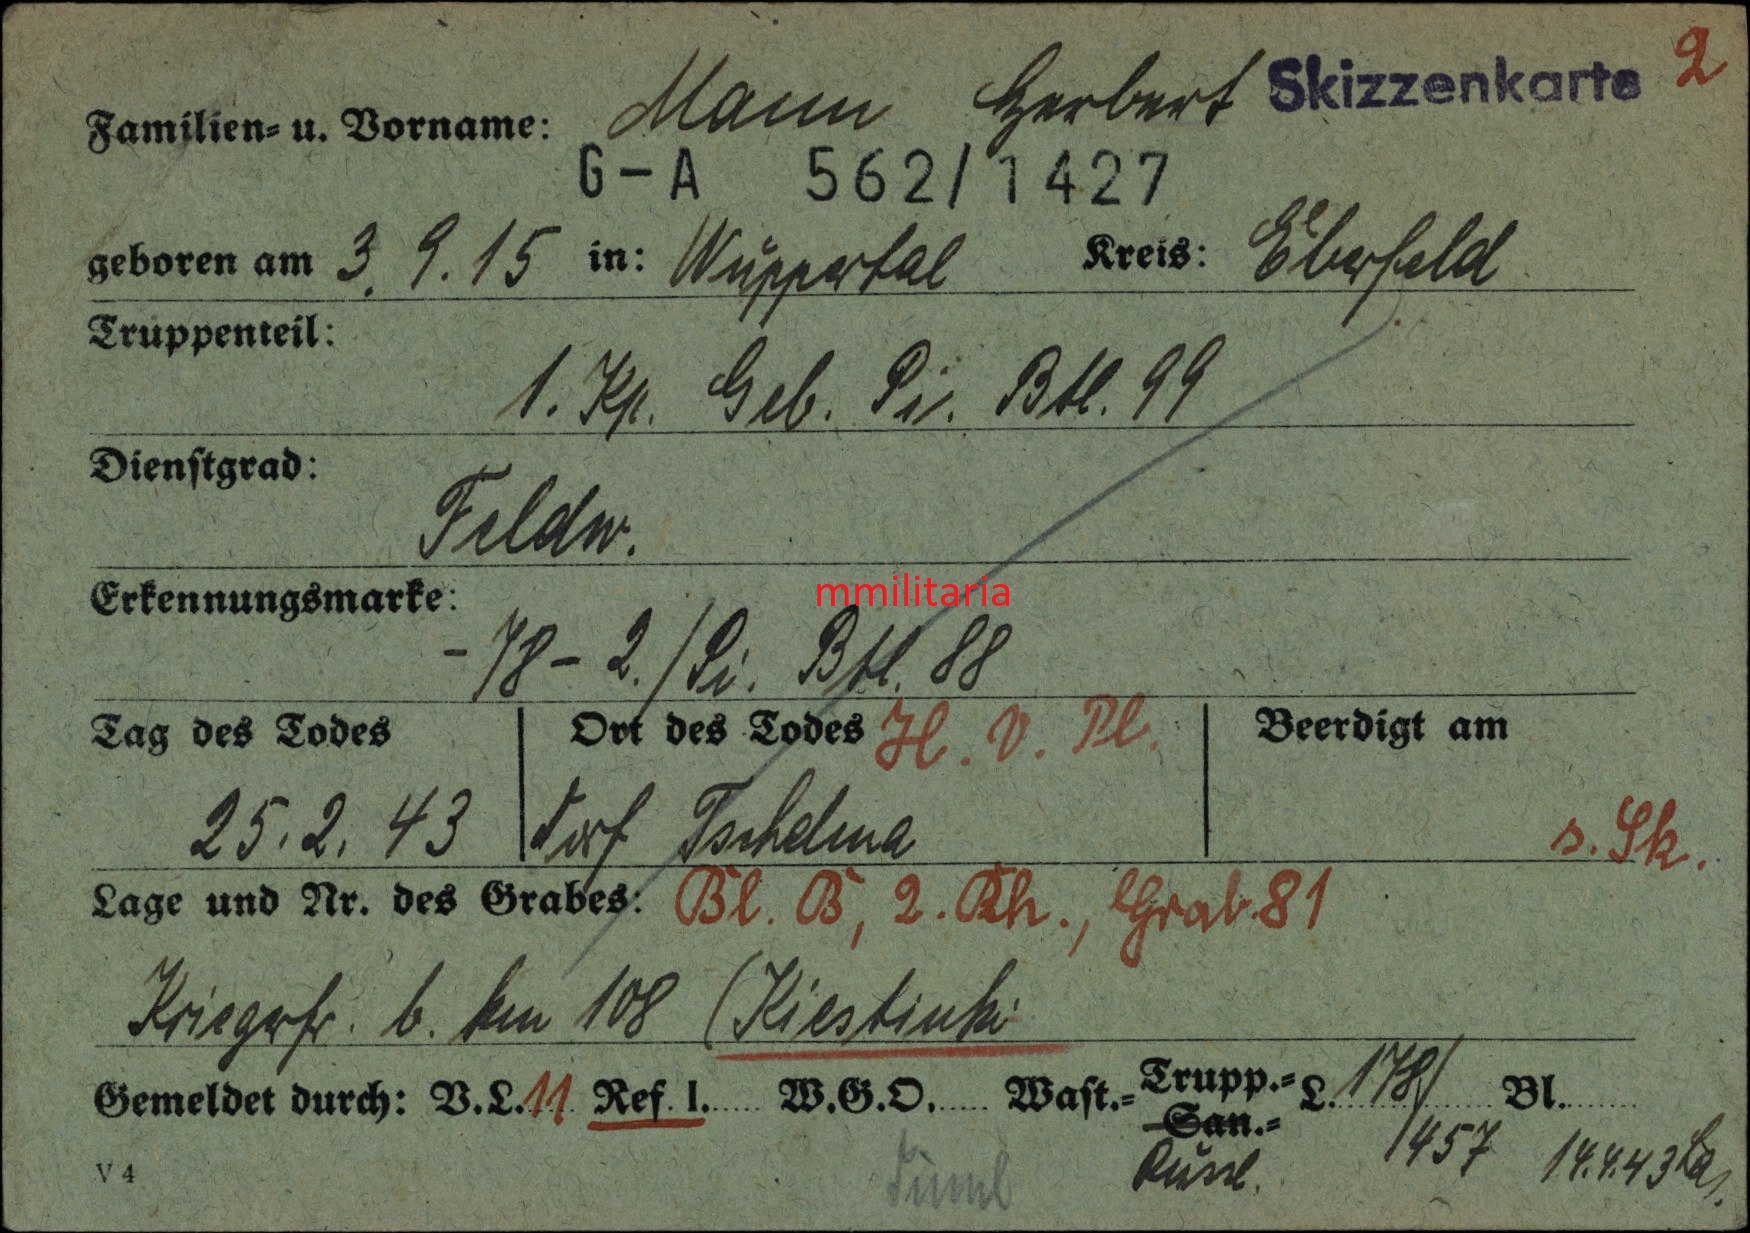 Skizzenkarte 2
Familien= u. Vorname: Mann Herbert
G-A 562/1427
geboren am 3. 9. 15 in: Wuppertal Kreis: Elberfeld
Truppenteil:
1. Kp. Geb. Pi. Btl. 99
Dienstgrad:
Feldw.
mmilitaria
Erkennungsmarke:
-78- 2./Pi. Btl. 88
Tag des Todes Ort des Todes H. V. Pl. Beerdigt am
25. 2. 43 Dorf s. Sk.
Lage und Nr. des Grabes: Bl. B, 2. Rh., Grab 81
Kriegerfr. b. km 108 (Kiestinki
Gemeldet durch: V.L. 11 Ref. 1. W.G.O. Wast.= Trupp.= L. 178/ Bl.
San.=
1457 14.4.43
V 4